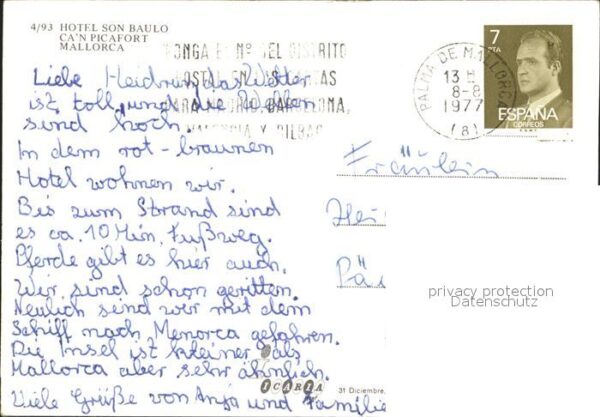 4/93 HOTEL SON BAULO
CA'N PICAFORT
MALLORCA
PONGA EL Nº DEL DISTRITO
POSTAL EN LAS CARTAS
PARA MADRID, BARCELONA,
VALENCIA Y BILBAO
PALMA DE MALLORCA
13 H
8-8
1977
(8)
7
PTA
ESPAÑA
CORREOS
Liebe Heidrun das Wetter
ist toll und die Wellen
sind hoch.
In dem rot-braunen
Hotel wohnen wir.
Bis zum Strand sind
es ca. 10 Min. Fußweg.
Pferde gibt es hier auch.
Wir sind schon geritten.
Neulich sind wir mit dem
Schiff nach Menorca gefahren.
Die Insel ist kleiner als
Mallorca aber sehr ähnlich.
Viele Grüße von Anja und Familie
Fräulein
Hei
privacy protection
Datenschutz
ICARIA
31 Diciembre,